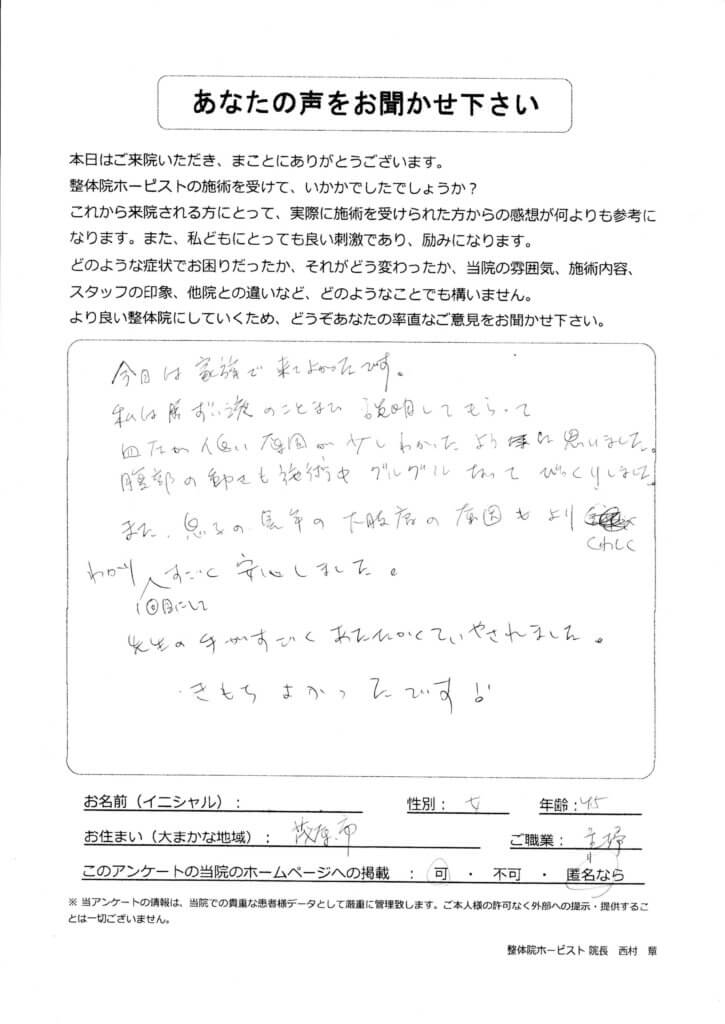 あなたの声をお聞かせ下さい
本日はご来院いただき、まことにありがとうございます。
整体院ホーピストの施術を受けて、いかかでしたでしょうか？
これから来院される方にとって、実際に施術を受けられた方からの感想が何よりも参考に
なります。また、私どもにとっても良い刺激であり、励みになります。
どのような症状でお困りだったか、それがどう変わったか、当院の雰囲気、施術内容、
スタッフの印象、他院との違いなど、どのようなことでも構いません。
より良い整体院にしていくため、どうぞあなたの率直なご意見をお聞かせ下さい。
今日は家族で来てよかったです。
私は のこと 説明してもらって
原因が少しわかったように思いました。
腹部の動きも施術中グルグルなってびっくりしました。
また、息子の長年の の原因もより
くわしく
わかりすごく安心しました。
1回目にして
先生の手がすごくあたたかくていやされました。
きもちよかったです!
お名前（イニシャル）：
性別：女
年齢：45
お住まい（大まかな地域）：茂原市
ご職業：主婦
このアンケートの当院のホームページへの掲載 ：可・不可・匿名なら
※ 当アンケートの情報は、当院での貴重な患者様データとして厳重に管理致します。ご本人様の許可なく外部への提示・提供するこ
とは一切ございません。
整体院ホーピスト 院長 西村